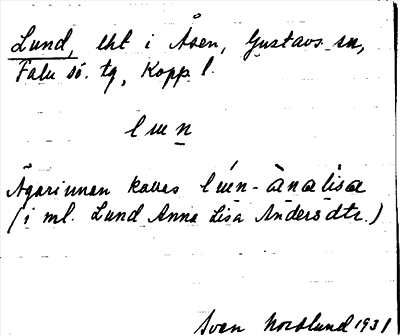 Lund, lht i Åsen, Gustavs sn,
Falu sö. tg, Kopp. l.
l u n
Ägarinnan kallas lún-ànalisa
(i ml. Lund Anna Lisa Andersdtr.)
Sven Nordlund 1931